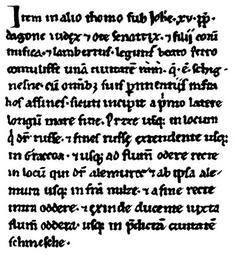 Item in alio thomo sub Iohe. xv. pp.
dagone iudex & ote senatrix. & filii eorū
misica. & lambertus. legunt beato petro
contulisse unā ciuitatē q. e. sching
nesne. cū omib; suis ptinentiis infra
hos affines. sicuti incipit a pmo latere
longū mare fine. usq; in locum
q dr russe. & fines russe extendente usq;
in craccoa. & usq; ad flum odere recte
in locū qui dr alemure. & ab ipsa ale
mura usq; in trā milze. & a fine recte
intra oddere. & exinde ducente iuxta
flum oddera. usq; in pdictā ciuitatē
schinesche.